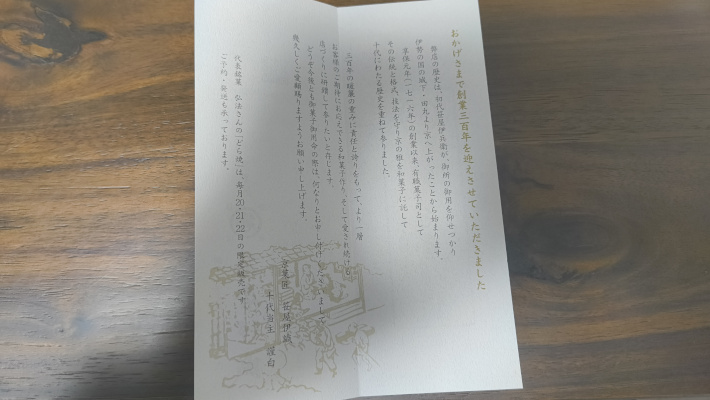 おかげさまで創業三百年を迎えさせていただきました
弊店の歴史は、初代笹屋伊兵衛が、御所の御用を仰せつかり
伊勢の国の城下・田丸より京へ上がったことから始まります。
享保元年(一七一六年)の創業以来、有職菓子司として
その伝統と格式、技法を守り京の雅を和菓子に託して
十代にわたる歴史を重ねて参りました。
三百年の暖簾の重みに責任と誇りをもって、より一層
お客様のご期待にお応えできる和菓子作り、そして愛され続ける
店づくりに研鑽して参りたいと存じます。
どうぞ今後とも御菓子御用命の際は、何なりとお申し付けくださいまして、
幾久しくご愛顧賜りますようお願い申し上げます。
笹屋伊織
十代当主 謹白
代表銘菓 弘法さんの「どら焼」は、毎月20・21・22日の限定販売です。
ご予約・発送も承っております。